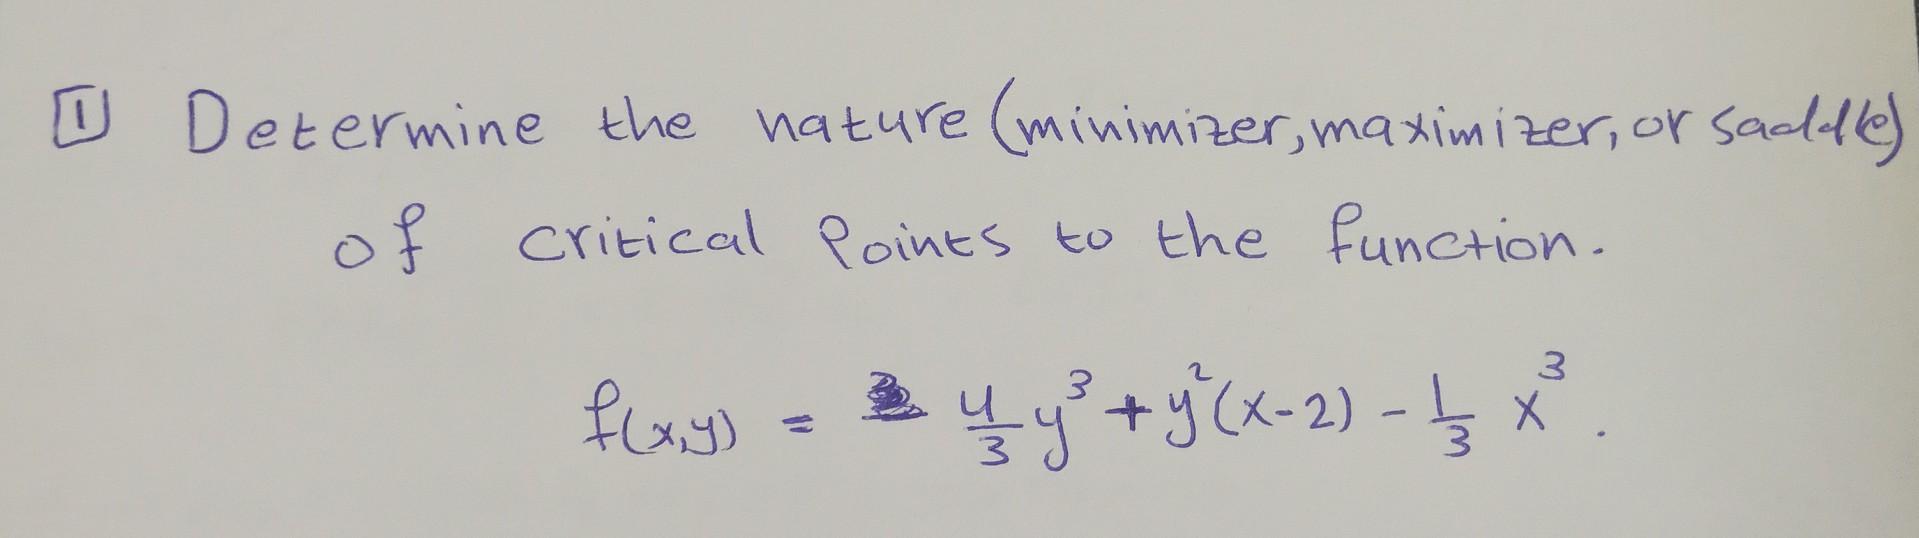 1 Determine the nature (minimizer, maximizer, or saddle)
of critical Points to the function.
f(x,y) = 4/3 y³ + y²(x-2) - 1/3 x³.